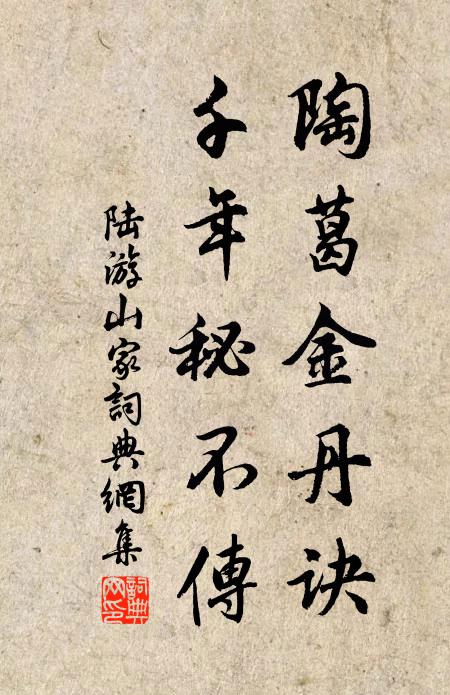 陶葛金丹訣
千年秘不傳
陆游山家詞典網集
詞典